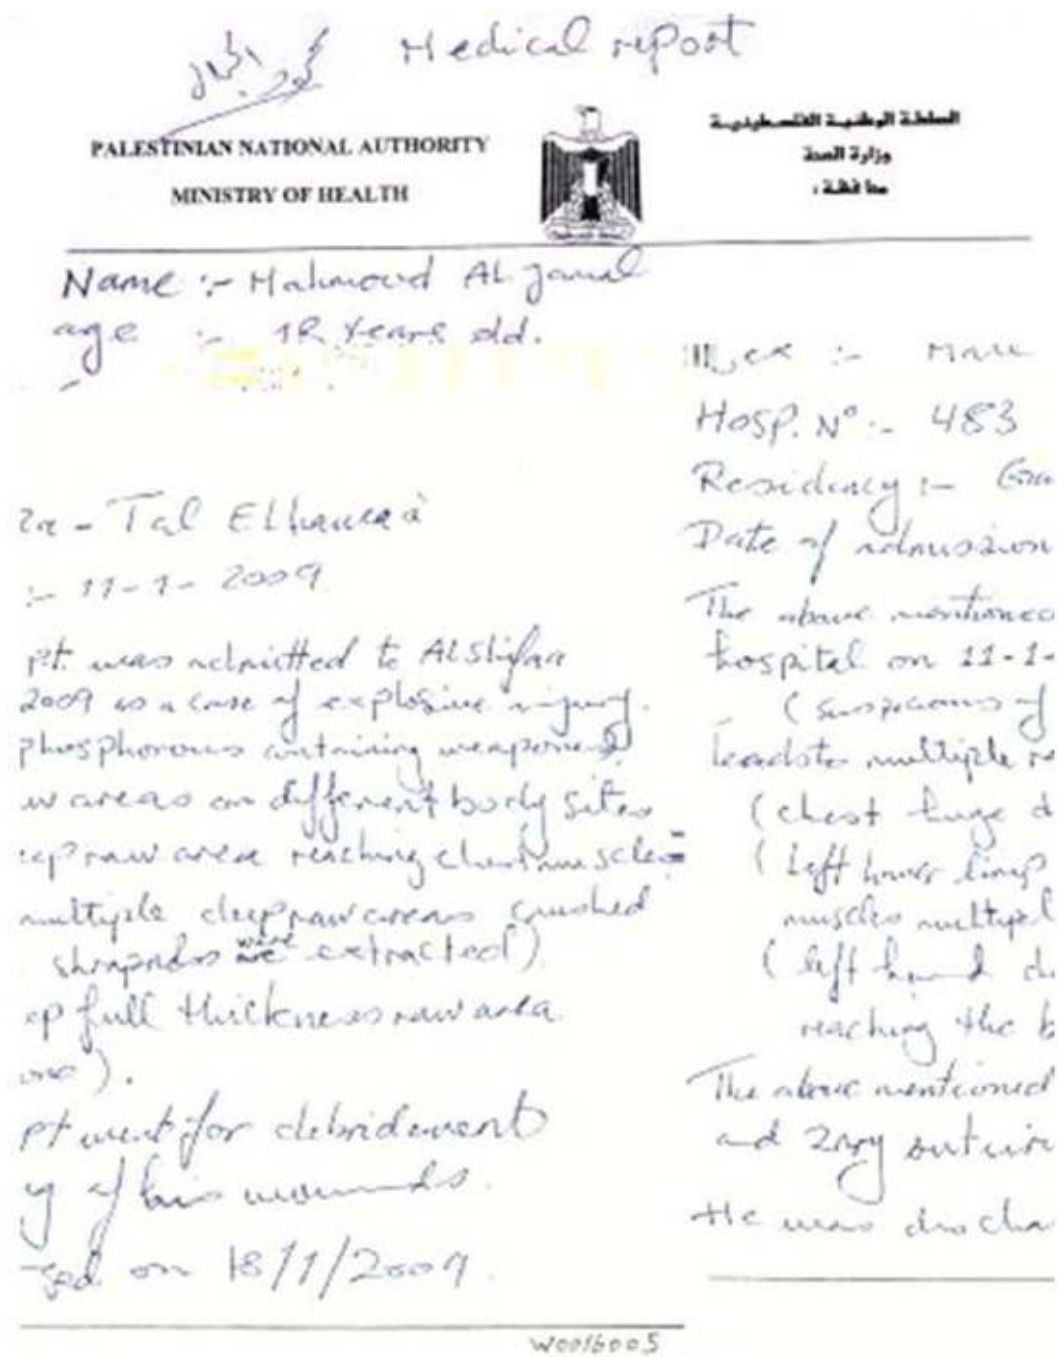 Medical report
محمود الجمل
PALESTINIAN NATIONAL AUTHORITY
MINISTRY OF HEALTH
السلطة الوطنية الفلسطينية
وزارة الصحة
محافظة :
Name :- Mahmoud AL Jamal
age :- 18 Years old.
za - Tal Elhawaa
:- 11-1-2009
pt. was admitted to AL Shifaa
2009 as a case of explosive injury.
phosphorous containing weapones)
aw areas on different body sites
eep raw area reaching chest muscles
multiple deep raw areas crushed
shrapnels were extracted)
ep full thickness raw area
one).
pt went for debridement
g of his wounds.
ged on 18/1/2009.
sex :- Male
Hosp. N° :- 483
Residency :- Ga
Date of admission
The above mentioned
hospital on 11-1-
(suspicious of
leads to multiple r
(chest huge d
(left lower limp
muscles multipl
(left hand de
reaching the b
The above mentioned
and 2nry suturin
He was dischar
W0016005